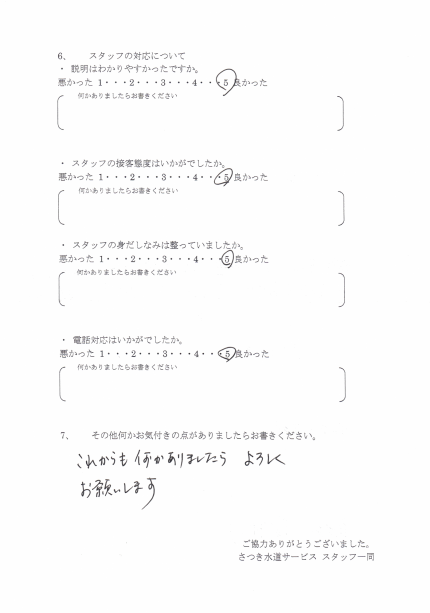 6、 スタッフの対応について
・ 説明はわかりやすかったですか。
悪かった 1・・・2・・・3・・・4・・・5 良かった
何かありましたらお書きください
・ スタッフの接客態度はいかがでしたか。
悪かった 1・・・2・・・3・・・4・・・5 良かった
何かありましたらお書きください
・ スタッフの身だしなみは整っていましたか。
悪かった 1・・・2・・・3・・・4・・・5 良かった
何かありましたらお書きください
・ 電話対応はいかがでしたか。
悪かった 1・・・2・・・3・・・4・・・5 良かった
何かありましたらお書きください
7、 その他何かお気付きの点がありましたらお書きください。
これからも何かありましたら よろしく
お願いします
ご協力ありがとうございました。
さつき水道サービス スタッフ一同